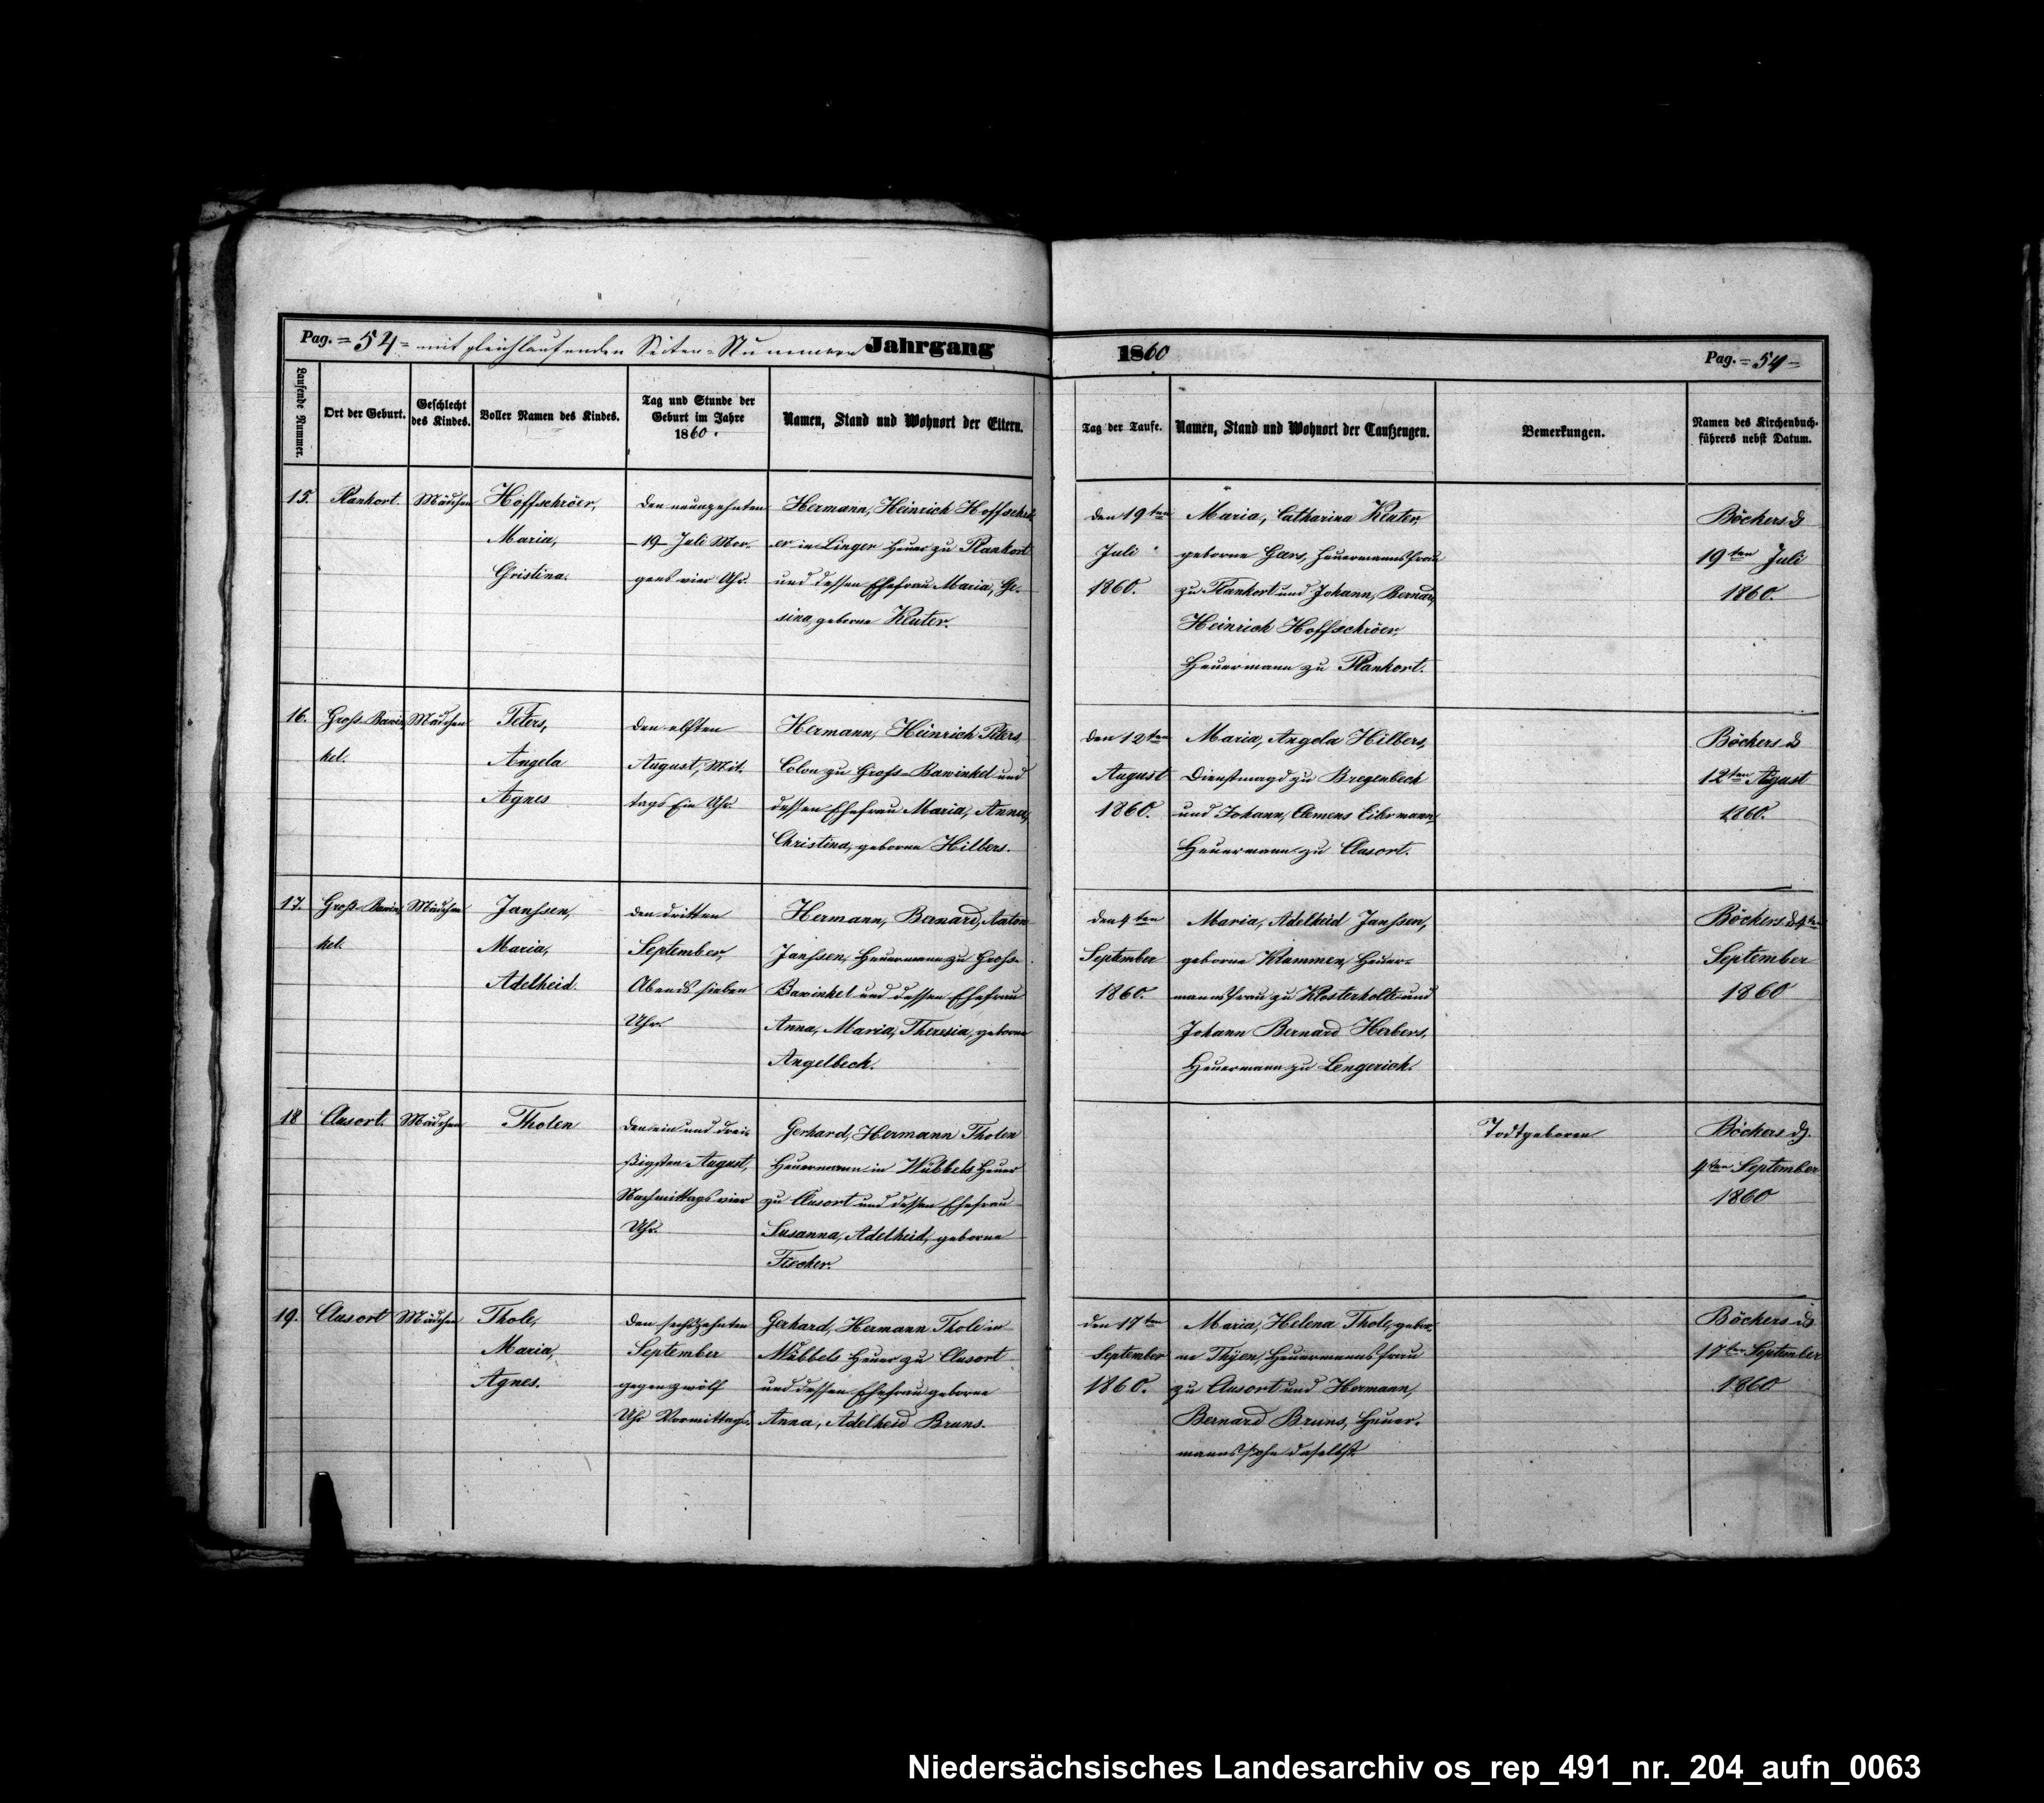 Pag. = 54 = mit gleichlaufenden Seiten-Nummern Jahrgang
1860
Pag. = 54 =
Laufende Nummer.
Ort der Geburt.
Geschlecht
des Kindes.
Voller Namen des Kindes.
Tag und Stunde der
Geburt im Jahre
1860.
Namen, Stand und Wohnort der Eltern.
Tag der Taufe.
Namen, Stand und Wohnort der Taufzeugen.
Bemerkungen.
Namen des Kirchenbuch-
führers nebst Datum.
15.
Plankort.
Mädchen
Hoffschröer,
Maria,
Christina.
Den neunzehnten
-19- Juli Mor-
gens vier Uhr.
Hermann, Heinrich Hoffschrö-
er in Linger Heuer zu Plankort
und dessen Ehefrau Maria, Ge-
sina, geborne Keuter.
den 19ten
Juli
1860.
Maria, Catharina Keuter,
geborne Gers, Heuermannsfrau
zu Plankort und Johann, Bernard,
Heinrich Hoffschröer,
Heuermann zu Plankort.
Böckers d
19ten Juli
1860.
16.
Groß-Bawin-
kel.
Mädchen
Peters,
Angela
Agnes
Den elften
August, Mit-
tags Ein Uhr.
Hermann, Heinrich Peters,
Colon zu Groß-Bawinkel und
dessen Ehefrau Maria, Anna,
Christina, geborne Hilbers.
den 12ten
August
1860.
Maria, Angela Hilbers,
Dienstmagd zu Bregenbeck
und Johann, Clemens Eilermann,
Heuermann zu Clusort.
Böckers d
12ten August
1860.
17.
Groß-Bawin-
kel.
Mädchen
Janssen,
Maria,
Adelheid.
den dritten
September,
Abends sieben
Uhr.
Hermann, Bernard, Anton
Janssen, Heuermann zu Groß-
Bawinkel und dessen Ehefrau
Anna, Maria, Theresia, geborne
Angelbeck.
den 4ten
September
1860.
Maria, Adelheid Janssen,
geborne Klammer, Heuer-
mannsfrau zu Klosterholte und
Johann Bernard Herbers,
Heuermann zu Lengerich.
Böckers d 4ten
September
1860
18
Clusort.
Mädchen
Tholen
Den ein und drei-
ßigsten August,
Nachmittags vier
Uhr.
Gerhard, Hermann Tholen
Heuermann in Wübbels Heuer
zu Clusort und dessen Ehefrau
Susanna, Adelheid, geborne
Fischer.
Todtgeboren
Böckers d.
4ten September
1860
19.
Clusort
Mädchen
Thole,
Maria,
Agnes.
Den sechszehnten
September
gegen zwölf
Uhr Vormittags.
Gerhard, Hermann Thole in
Wübbels Heuer zu Clusort
und dessen Ehefrau geborne
Anna, Adelheid Bruns.
den 17ten
September
1860.
Maria, Helena Thole, gebor-
ne Thyen, Heuermannsfrau
zu Clusort und Hermann,
Bernard Bruns, Heuer-
mannssohn daselbst
Böckers d
17ten September
1860
Niedersächsisches Landesarchiv os_rep_491_nr._204_aufn_0063